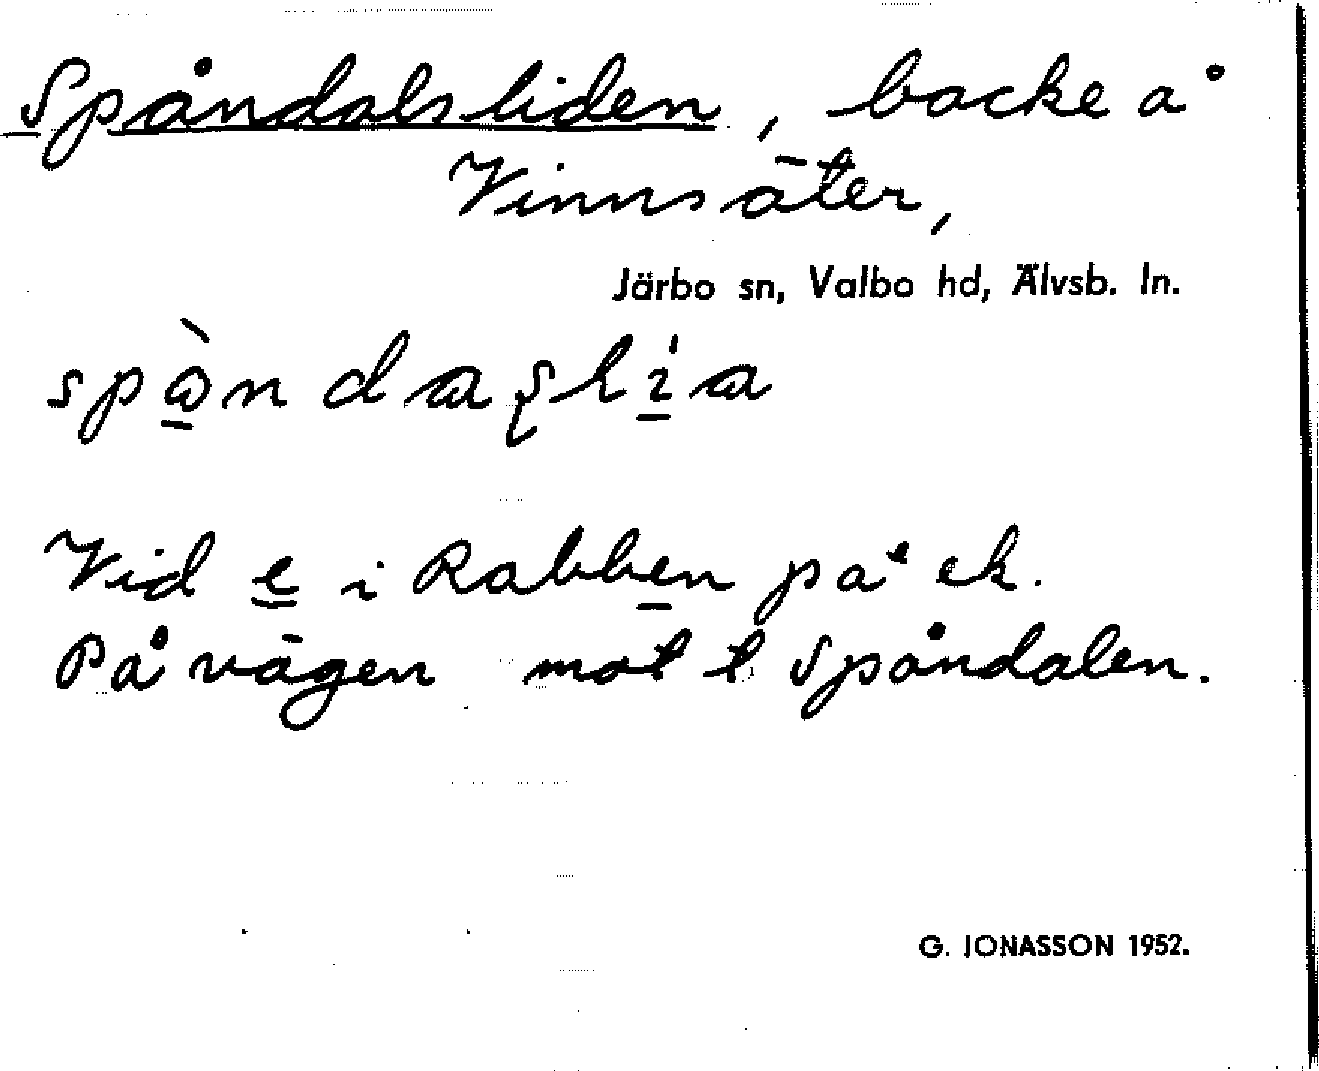 Spåndalsliden, backe å
Vinnsäter,
Järbo sn, Valbo hd, Älvsb. ln.
Vid e i Rabben på ek.
På vägen mot t Spåndalen.
G. JONASSON 1952.